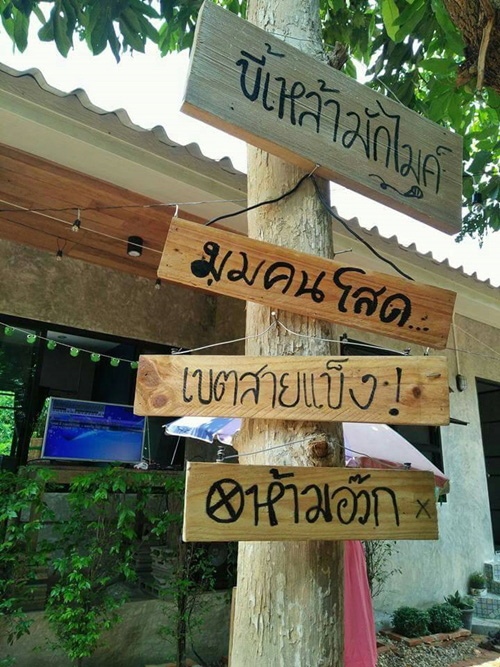 ขี้เหล้ามักไมค์
มุมคนโสด...
เขตสายแข็ง!
ห้ามอ๊วก